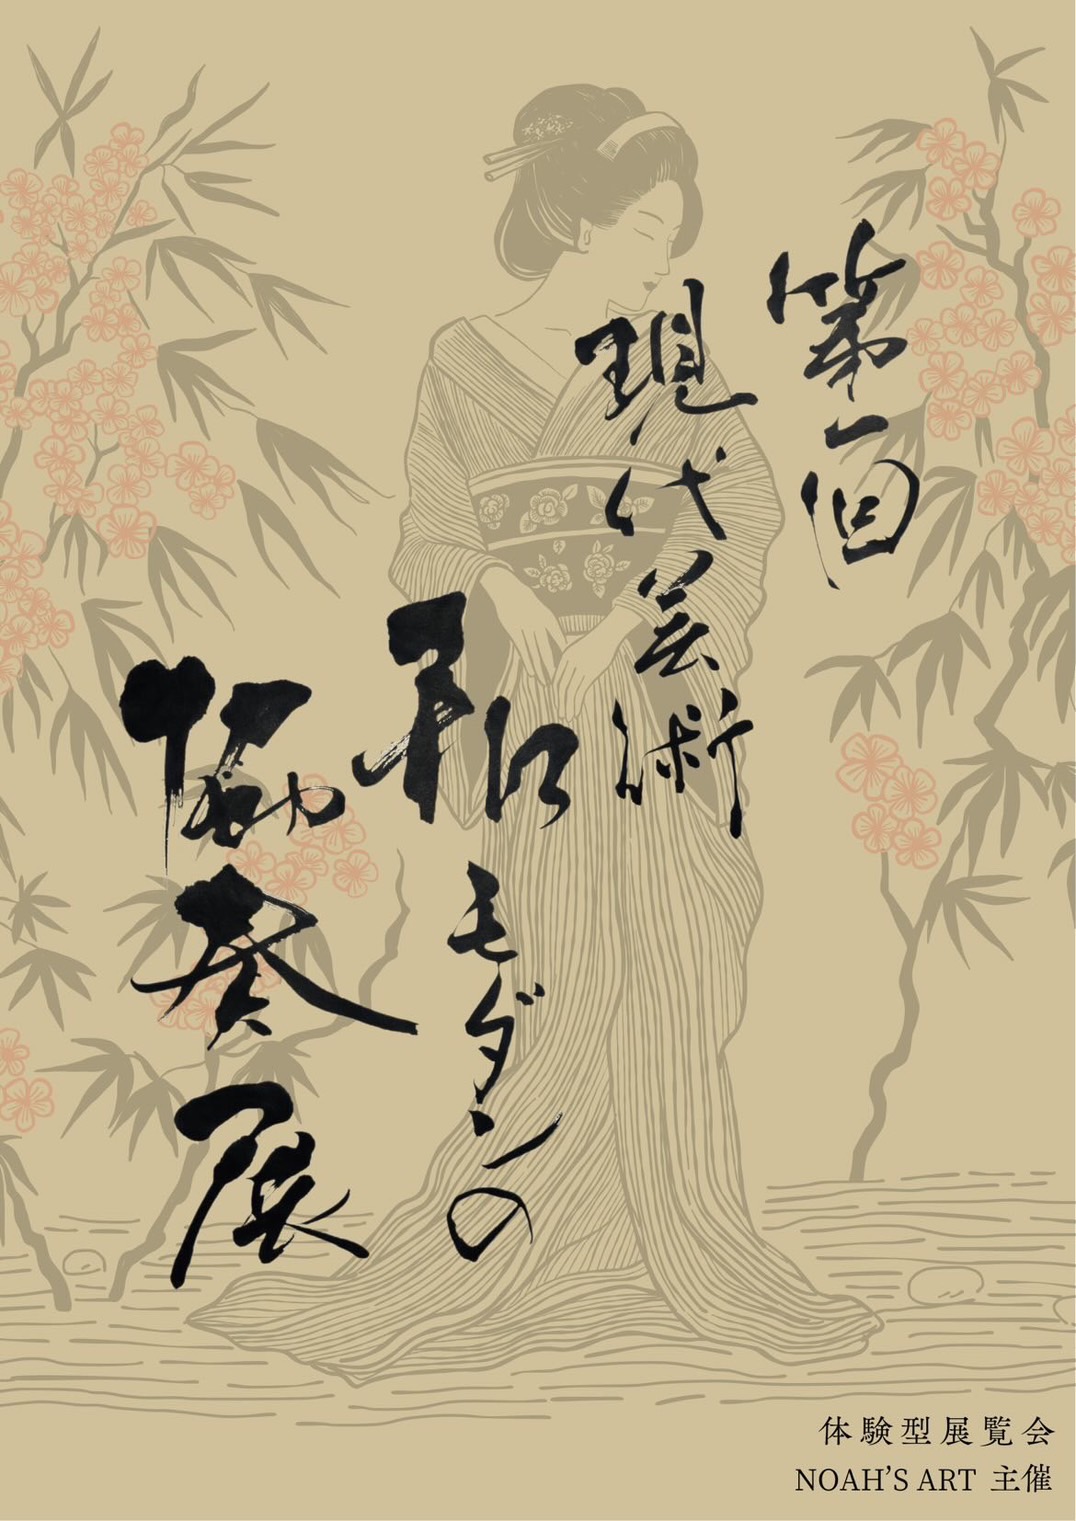 第一回
現代芸術
和モダンの
協奏展
体験型展覧会
NOAH'S ART 主催